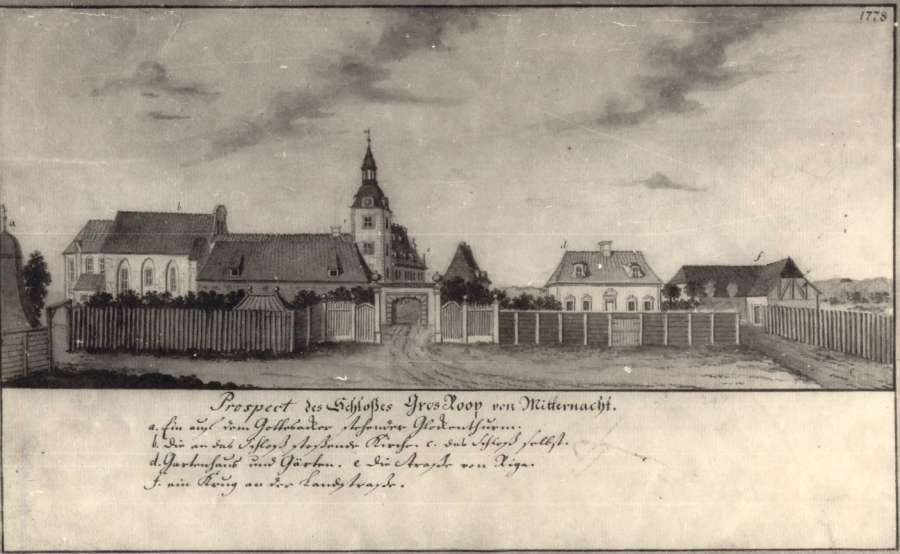 1778
a
b
c
d
e
f
Prospect des Schloßes Gros Roop von Mitternacht.
a. Ein auf dem Gottesacker stehender Glockenthurm.
b. Die an das Schloß stoßende Kirche. c. das Schloß selbst.
d. Gartenhaus und Gärten. e die Straße von Riga.
f. ein Krug an der Landstraße.